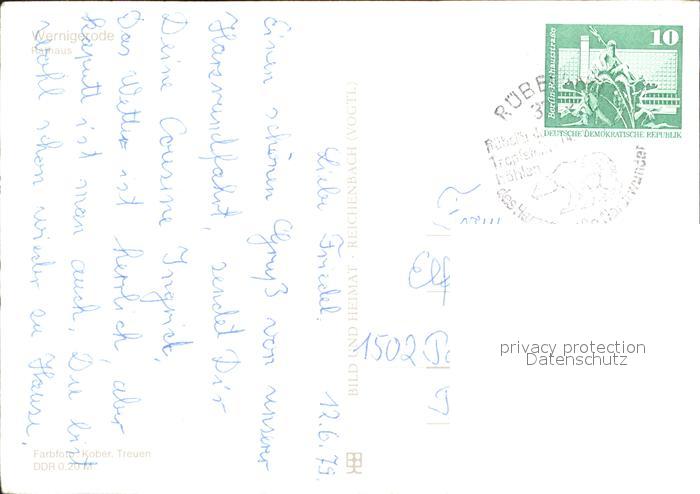 Wernigerode
Rathaus
12.6.79.
Liebe Friedel.
Einen schönen Gruß von unserer
Harzrundfahrt, sendet Dir
Deine Cousine Ingrid.
Das Wetter ist herrlich aber
kaputt ist man auch, Du bist
wohl schon wieder zu Hause.
BILD UND HEIMAT · REICHENBACH (VOGTL.)
Farbfoto: Kober, Treuen
DDR 0,20 M
10
Berlin-Rathausstraße
DEUTSCHE DEMOKRATISCHE REPUBLIK
RÜBE
1502
privacy protection
Datenschutz